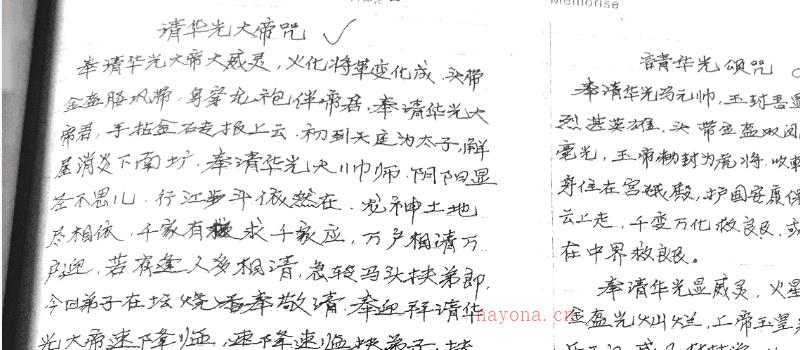 Memorise
请华光大帝咒 ✓
奉请华光大帝大威灵，火化将军变化成，头带
金盔胳风带，身穿龙袍伴帝君，奉请华光大
帝君，手拈金砖报上云，初到天庭为太子，解
厄消灾下南，奉请华光大帅师，阴阳显
圣不思儿，行江步斗依然在，龙神土地
尽相依，千家有求千家应，万户相请万
户迎，若有逢人多相请，急较马头扶弟郎，
今回弟子在坛烧香奉敬请，奉迎拜请华
光大帝速下降临，速下降速临扶弟子，扶
请华光颂咒
奉请华光马元帅，玉封吾显
烈甚英雄，头带金盔双
毫光，玉帝勅封为虎将，收
身住在宫殿，护国安康保
云上走，千变万化救良民，或
在中界救良民。
奉请华光显威灵，火星
金盔光灿烂，上帝玉皇
nayona.cn